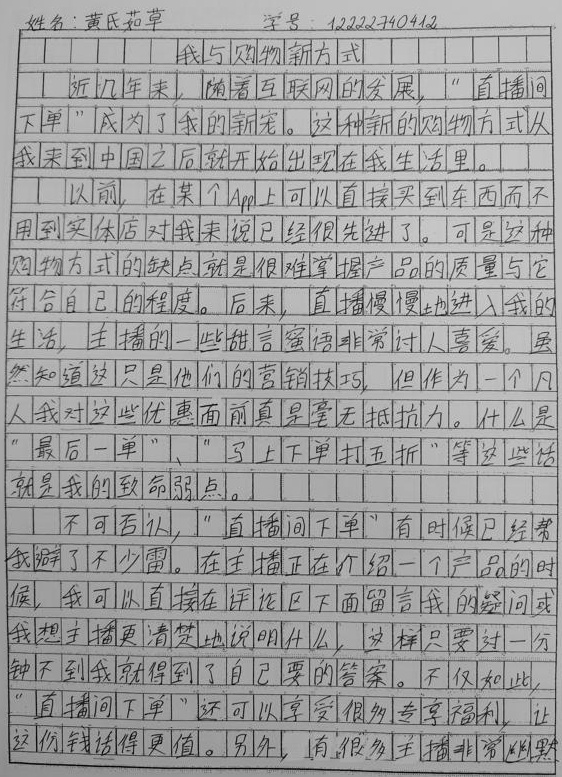 姓名：黄氏茹草 学号：12222740412
我与购物新方式
近几年来，随着互联网的发展，“直播间
下单”成为了我的新宠。这种新的购物方式从
我来到中国之后就开始出现在我生活里。
以前，在某个App上可以直接买到东西而不
用到实体店对我来说已经很先进了。可是这种
购物方式的缺点就是很难掌握产品的质量与它
符合自己的程度。后来，直播慢慢地进入我的
生活，主播的一些甜言蜜语非常讨人喜爱。虽
然知道这只是他们的营销技巧，但作为一个凡
人我对这些优惠面前真是毫无抵抗力。什么是
“最后一单”、“马上下单打五折”等这些话
就是我的致命弱点。
不可否认，“直播间下单”有时候已经帮
我避了不少雷。在主播正在介绍一个产品的时
候，我可以直接在评论区下面留言我的疑问或
我想主播更清楚地说明什么，这样只要过一分
钟不到我就得到了自己要的答案。不仅如此，
“直播间下单”还可以享受很多专享福利，让
这份钱话得更值。另外，有很多主播非常幽默